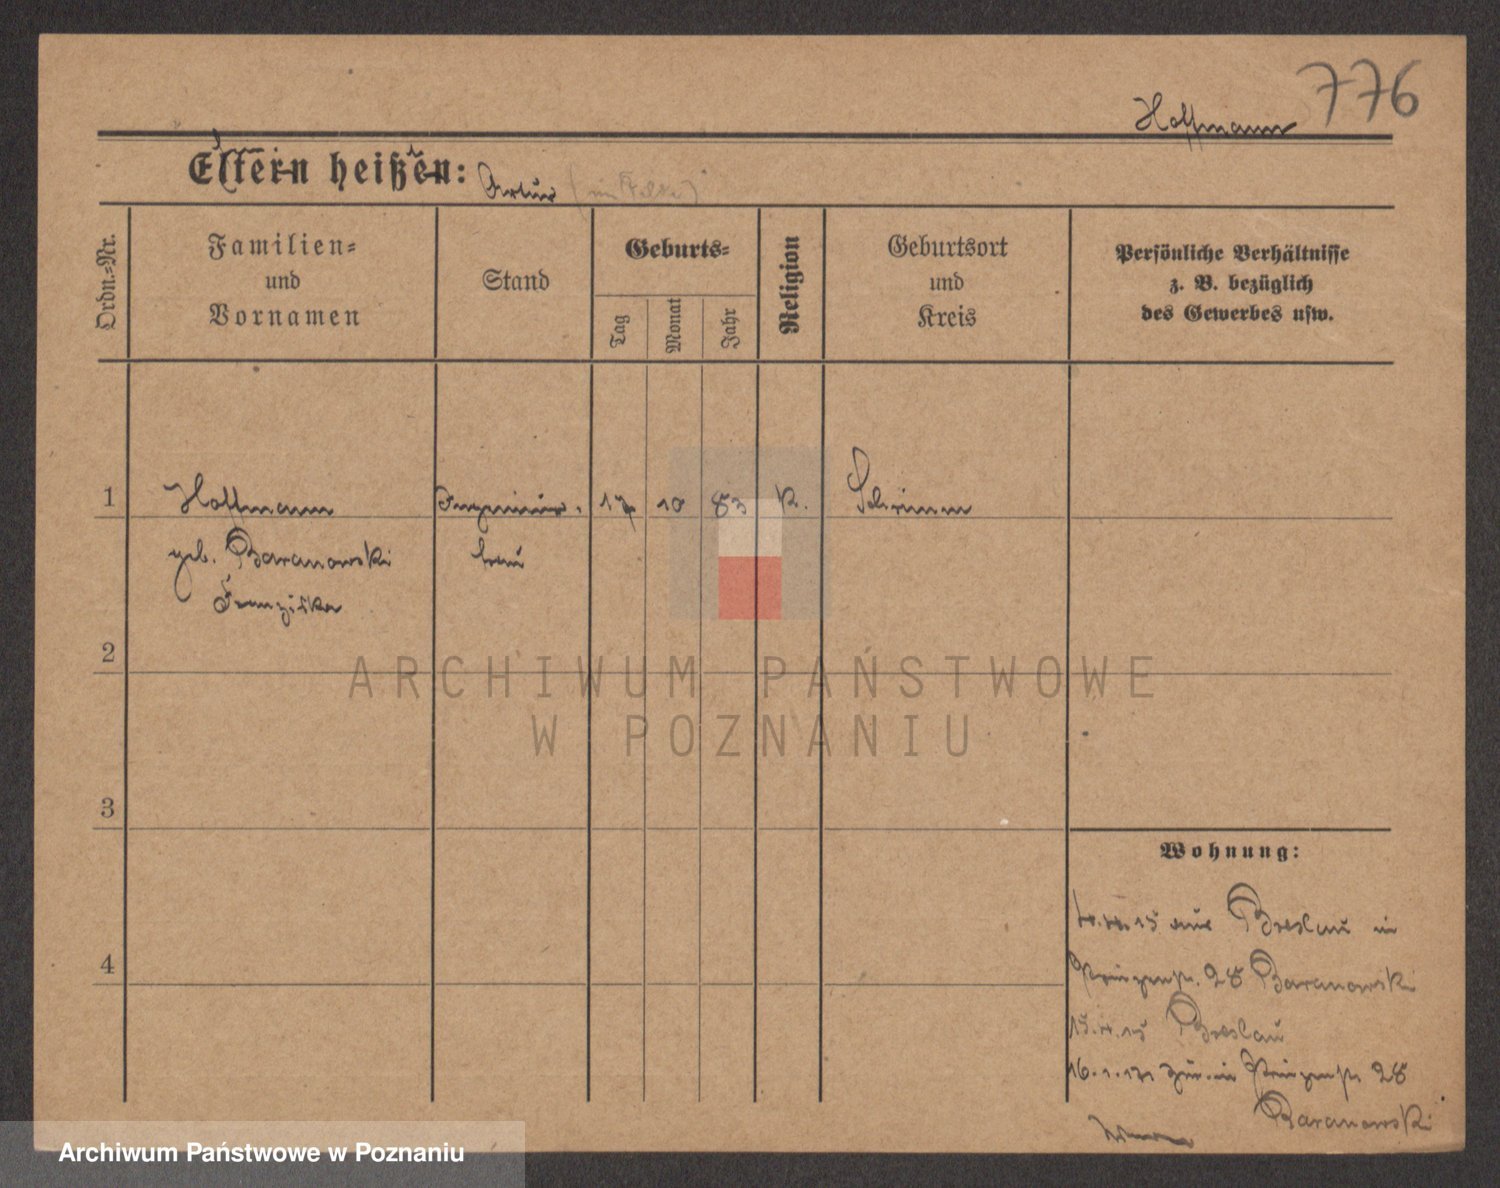 776
Hoffmann
Eltern heißen: Artur (im Felde)
Ordn.=Nr.
Familien=
und
Vornamen
Stand
Geburts=
Tag
Monat
Jahr
Religion
Geburtsort
und
Kreis
Persönliche Verhältnisse
z. B. bezüglich
des Gewerbes usw.
1 Hoffmann Ingenieur- 17 10 83 K. Schrimm
geb. Baranowski frau
Franziska
2
ARCHIWUM PAŃSTWOWE
W POZNANIU
3
Wohnung:
15 aus Breslau in
4
Prinzenstr. 28 Baranowski
15.4.15 Breslau
16.1. zur. in Prinzenstr 28
Baranowski
Archiwum Państwowe w Poznaniu